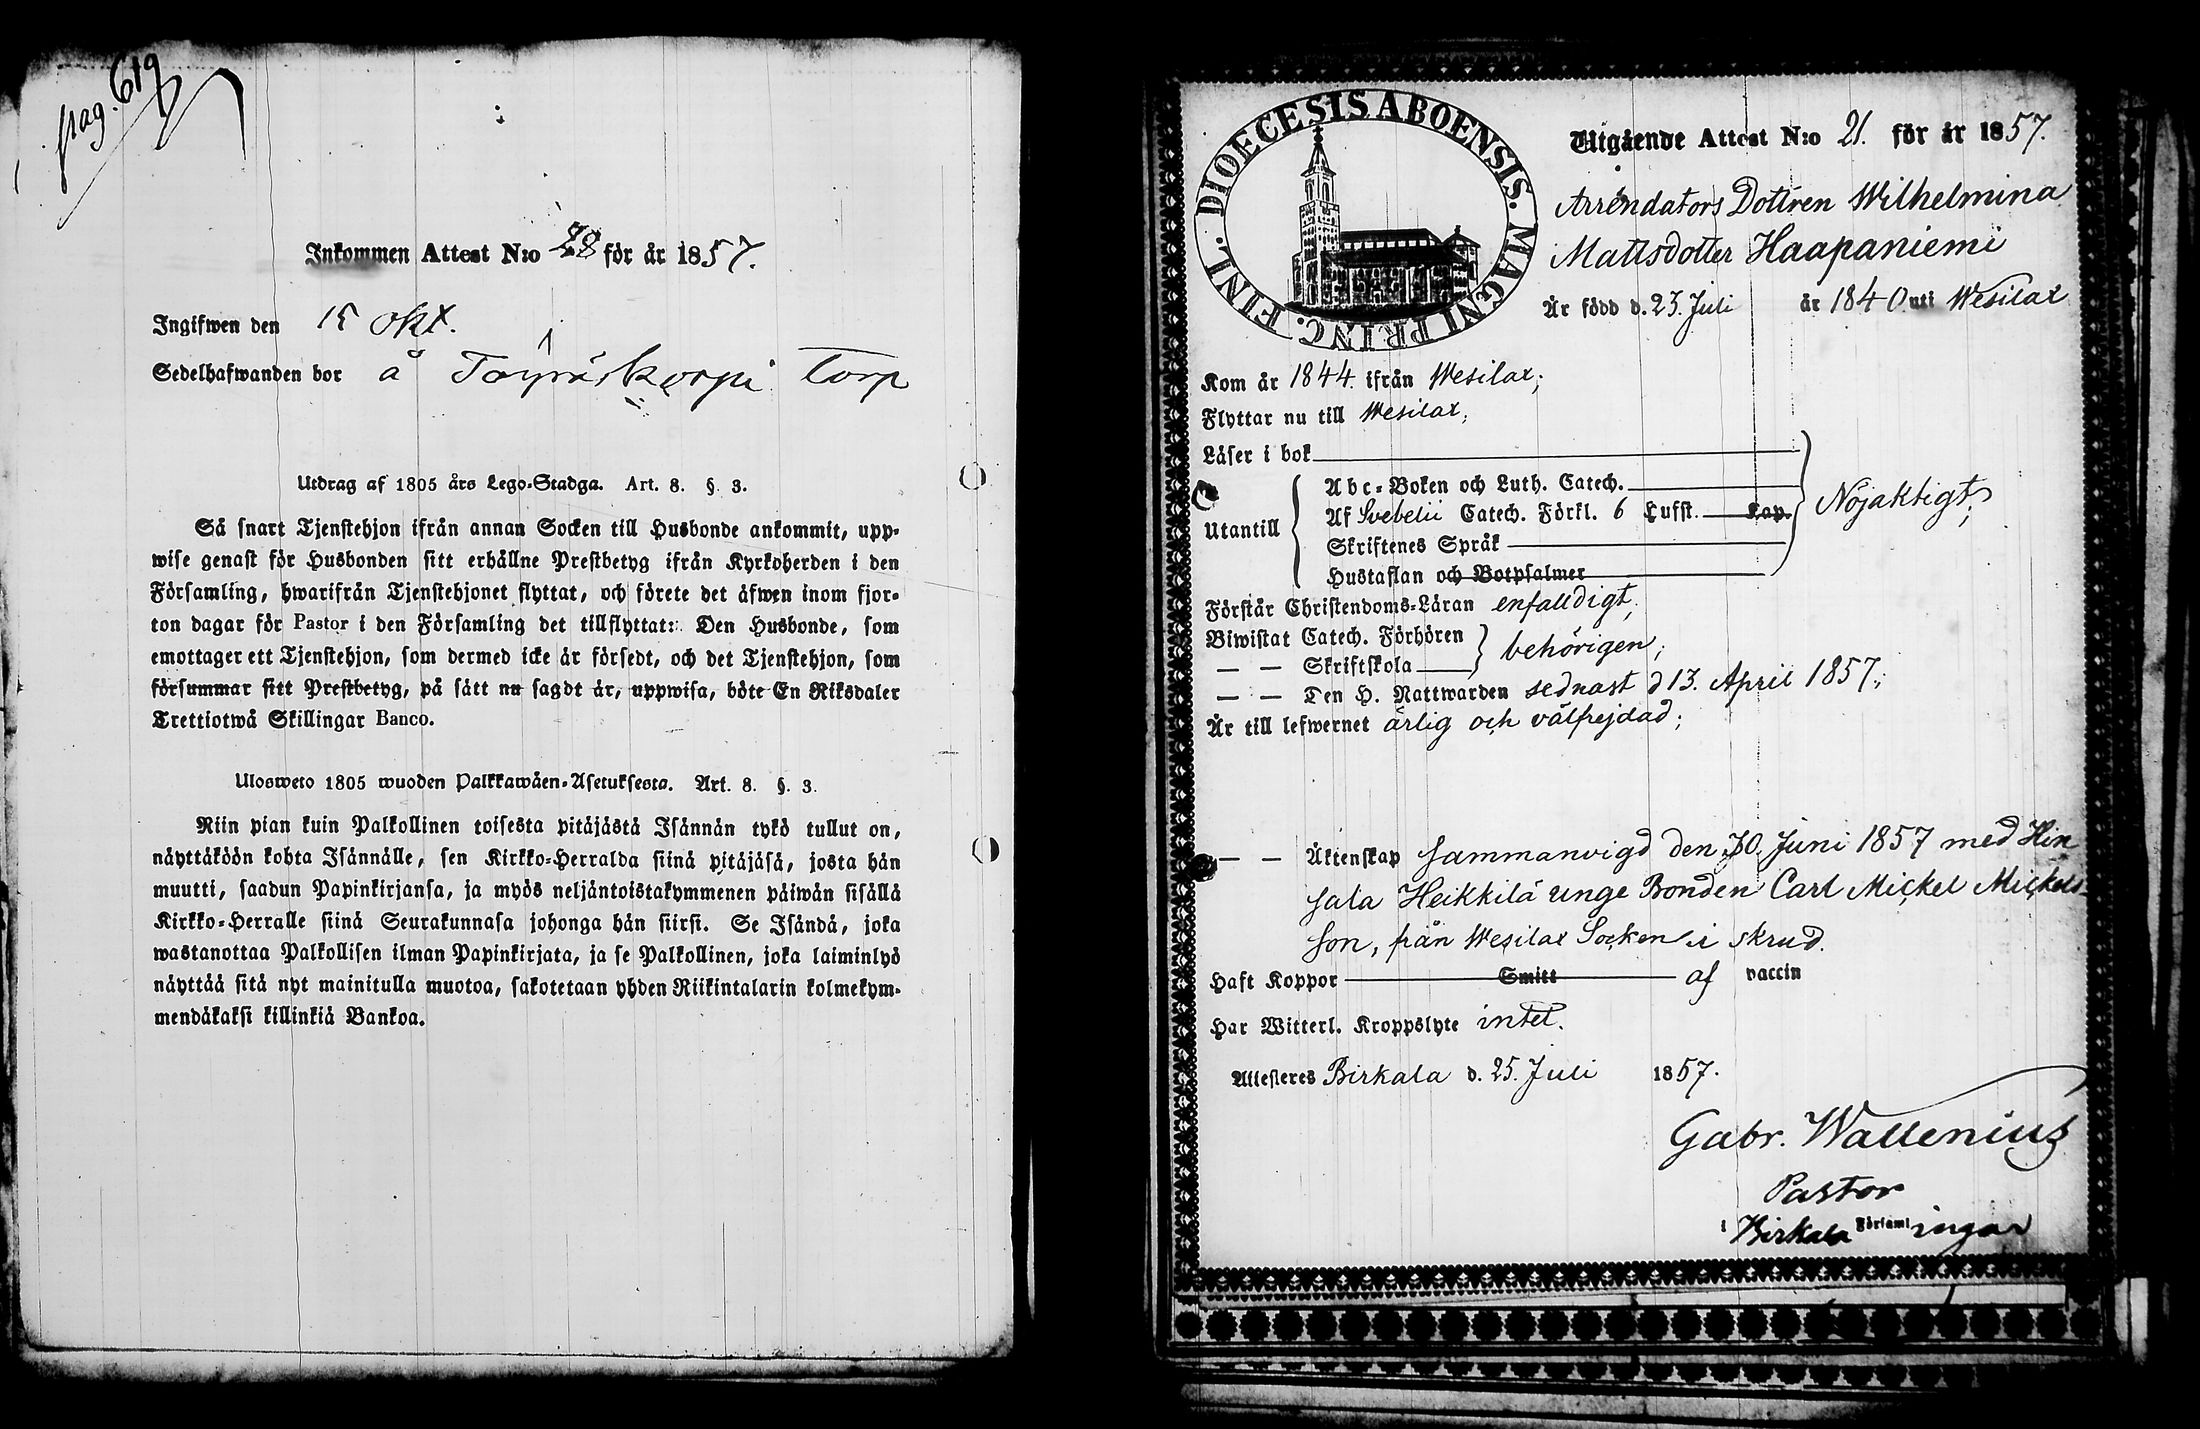 pag. 619
Inkommen Attest N:o 28 för år 1857.
Ingifwen den 15 okt.
Sedelhafwanden bor å Töyräskorpi Torp
Utdrag af 1805 års Lego-Stadga. Art. 8. §. 3.
Så snart Tjenstehjon ifrån annan Socken till Husbonde ankommit, upp-
wise genast för Husbonden sitt erhållne Prestbetyg ifrån Kyrkoherden i den
Församling, hwarifrån Tjenstehjonet flyttat, och förete det äfwen inom fjor-
ton dagar för Pastor i den Församling det tillflyttat: Den Husbonde, som
emottager ett Tjenstehjon, som dermed icke är försedt, och det Tjenstehjon, som
försummar sitt Prestbetyg, på sätt nu sagdt är, uppwisa, böte En Riksdaler
Trettiotwå Skillingar Banco.
Ulosweto 1805 wuoden Palkkawäen-Asetuksesta. Art. 8. §. 3.
Niin pian kuin Palkollinen toisesta pitäjästä Isännän tykö tullut on,
näyttäköön kohta Isännälle, sen Kirkko-Herralda siinä pitäjäsä, josta hän
muutti, saadun Papinkirjansa, ja myös neljäntoistakymmenen päiwän sisällä
Kirkko-Herralle siinä Seurakunnasa johonga hän siirsi. Se Isändä, joka
wastanottaa Palkollisen ilman Papinkirjata, ja se Palkollinen, joka laiminlyö
näyttää sitä nyt mainitulla muotoa, sakotetaan yhden Riikintalarin kolmekym-
mendäkaksi killinkiä Bankoa.
DIOECESIS ABOENSIS. MAGNI PRINC. FINL.
Utgående Attest N:o 21. för år 1857.
Arrendators Dottren Wilhelmina
Mattsdotter Haapaniemi
Är född d. 23. Juli år 1840 uti Wesilax
Kom år 1844. ifrån Wesilax;
Flyttar nu till Wesilax;
Läser i bok
Utantill
Abc-Boken och Luth. Catech.
Af Svebelii Catech. Förkl. 6 Hufst. Kap.
Skriftenes Språk
Hustaflan och Botpsalmer
Nöjaktigt;
Förstår Christendoms-Läran enfaldigt;
Biwistat Catech. Förhören
— — Skriftskola
behörigen;
— — Den H. Nattwarden sednast d 13. April 1857;
Är till lefwernet ärlig och välfrejdad;
— — Äktenskap sammanvigd den 30. Juni 1857 med Hin
sala Heikkilä unge Bonden Carl Mickel Mickels
son, från Wesilax Socken i skrud.
Haft Koppor Smitt af vaccin
Har Witterl. Kroppslyte intet.
Attesteres Birkala d. 25. Juli 1857.
Gabr. Wallenius
Pastor
i Birkala Församlingar